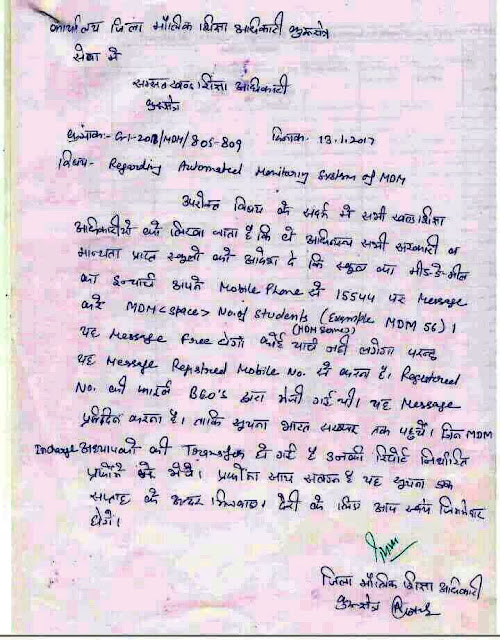 कार्यालय जिला मौलिक शिक्षा अधिकारी कुरुक्षेत्र
सेवा में
समस्त खण्ड शिक्षा अधिकारी
कुरुक्षेत्र
क्रमांक:- /MDM/805-809 दिनांक: 13.1.2017
विषय- Regarding Automated Monitoring System of MDM
उपरोक्त विषय के संदर्भ में सभी खण्ड शिक्षा
अधिकारियों को लिखा जाता है कि वे सभी सरकारी व
मान्यता प्राप्त स्कूलों को आदेश दे कि स्कूल का मीड-डे-मील
का इन्चार्ज अपने Mobile Phone से 15544 पर Message
करे MDM <space> No. of Students (Example MDM 56)।
यह Message Free होगा कोई चार्ज नहीं लगेगा परन्तु
यह Message Registred Mobile No. से करना है। Registered
No. की BEO'S द्वारा भेजी गई थी। यह Message
प्रतिदिन करना है। ताकि सूचना भारत सरकार तक पहुंचे। जिन MDM
Incharge अध्यापकों की Transfer हो गई है उनकी रिपोर्ट निर्धारित
प्रफोर्मे में भेजे। प्रफोर्मा साथ संलग्न है यह सूचना एक
सप्ताह के अन्दर भिजवाए। देरी के लिए आप स्वयं जिम्मेवार
होंगे।
जिला मौलिक शिक्षा अधिकारी
कुरुक्षेत्र